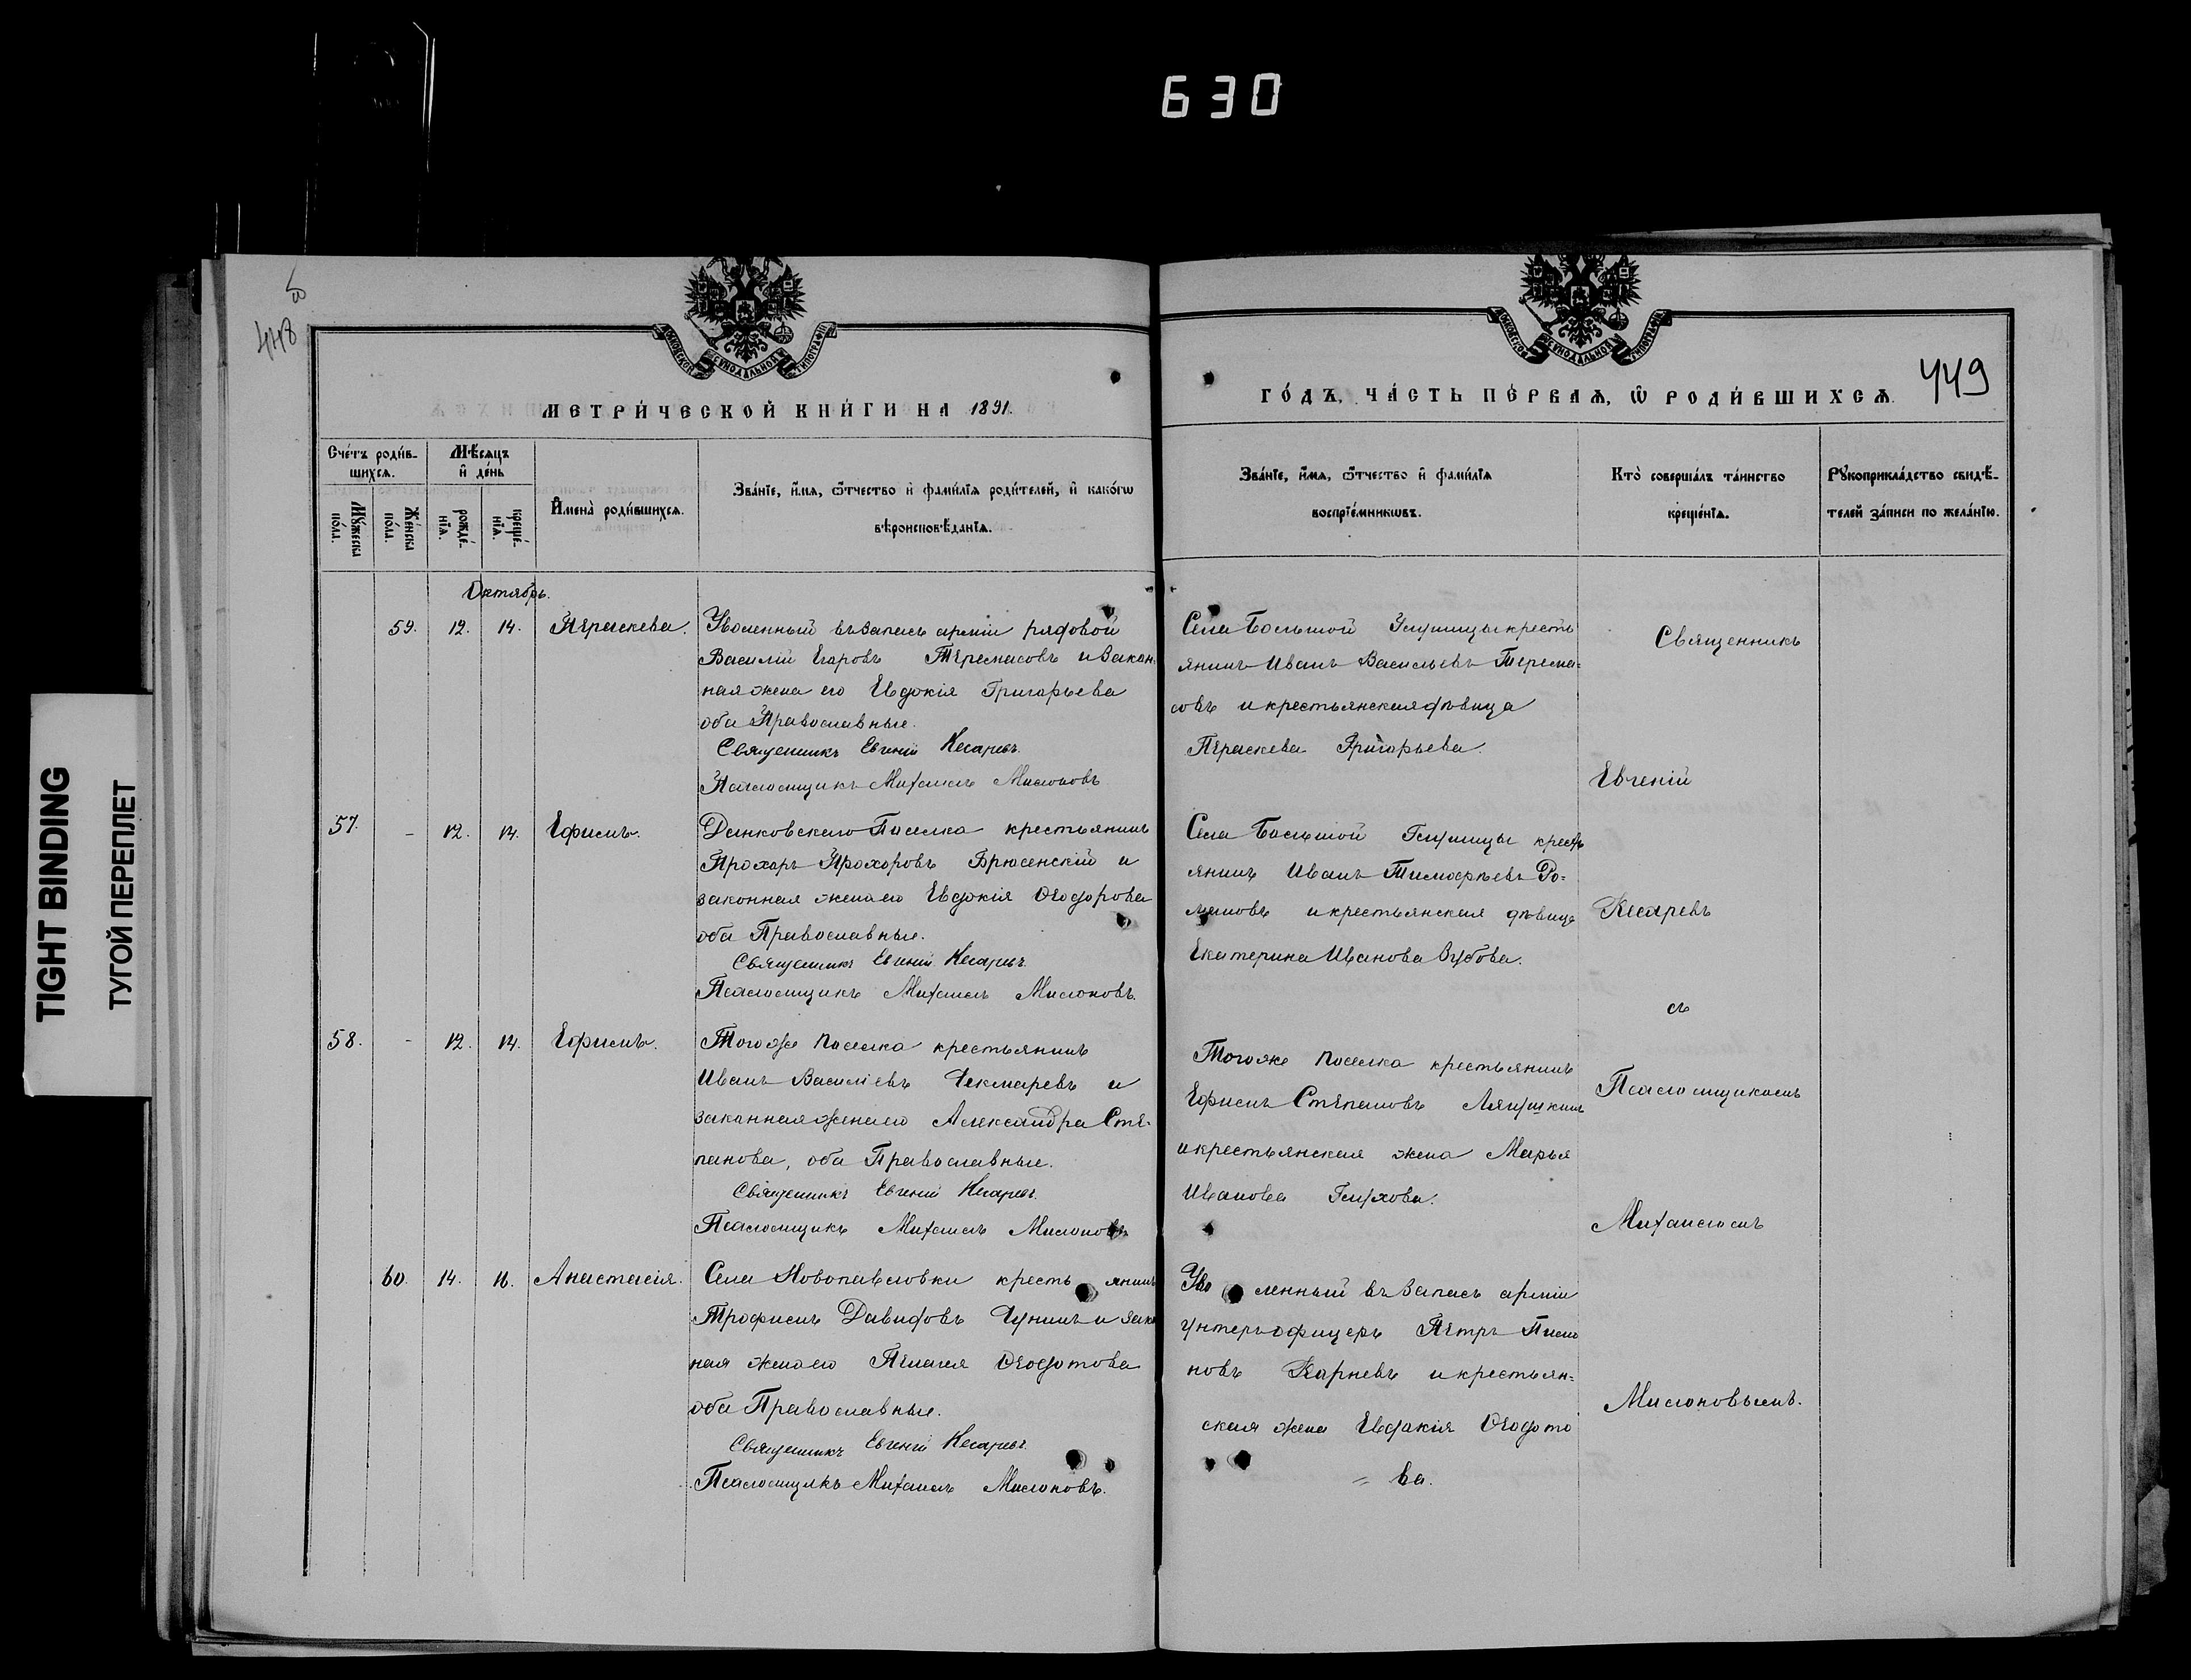 630
TIGHT BINDING
ТУГОЙ ПЕРЕПЛЕТ
448
449
МЕТРИ́ЧЕСКОЙ КНИ́ГИ НА 1891.
ГО́ДЪ, ЧА́СТЬ ПЕ́РВАѦ, Ѡ҆ РОДИ́ВШИХСѦ.
Счетъ роди́в-
шихсѧ.
Мѣ́сѧцъ
и҆ де́нь
Мꙋ́жеска
по́ла.
Же́нска
по́ла.
рожде́-
нїѧ.
креще́-
нїѧ.
И҆мена̀ роди́вшихсѧ.
Зва́нїе, и҆́мѧ, ѻ҆́тчество и҆ фами́лїѧ роди́телей, и҆ како́гѡ
вѣроисповѣ́данїѧ.
Зва́нїе, и҆́мѧ, ѻ҆́тчество и҆ фами́лїѧ
воспрїе́мникѡвъ.
Кто̀ соверша́лъ та́инство
креще́нїѧ.
Рꙋкоприкла́дство свидѣ́-
телей за́писи по жела́нїю.
Октябрь.
59. 12. 14. Параскева.
Уволенный въ запасъ арміи рядовой
Василій Егоровъ Термасовъ и закон
ная жена его Евдокія Григорьева
оба Православные.
Священникъ Евгеній Кесаревъ
Псаломщикъ Михаилъ Милоновъ
Села Большой крестъ
янинъ Иванъ Васильевъ Терма=
совъ и крестьянская дѣвица
Параскева Григорьева.
57. - 12. 14. Ефимъ.
Данковскаго Поселка крестьянинъ
Прохоръ Прохоровъ Брюсенскій и
законная жена его Евдокія Ѳеодорова
оба Православные.
Священникъ Евгеній Кесаревъ
Псаломщикъ Михаилъ Милоновъ.
Села Большой крестъ
янинъ Иванъ Тимоѳѣевъ Ро=
мановъ и крестьянская дѣвица
Екатерина Иванова Зубова.
58. - 12. 14. Ефимъ.
Того же поселка крестьянинъ
Иванъ Василіевъ Чекмаревъ и
законная жена его Александра Сте-
панова, оба Православные.
Священникъ Евгеній Кесаревъ
Псаломщикъ Михаилъ Милоновъ
Того же поселка крестьянинъ
Ефимъ Степановъ Лягушкинъ
и крестьянская жена Марья
Иванова Глухова.
60. 14. 16. Анастасія.
Села Новопавловки крестьянинъ
Трофимъ Давидовъ Чунинъ и зако
ная жена его Пелагея Ѳеодотова
оба Православные.
Священникъ Евгеній Кесаревъ
Псаломщикъ Михаилъ Милоновъ.
Уволенный въ запасъ арміи
унтеръ офицеръ Петръ
новъ Карневъ и крестьян=
ская жена Евдокія Ѳеодото
= ва.
Священникъ
Евгеній
Кесаревъ
съ
Псаломщикомъ
Михаиломъ
Милоновымъ.